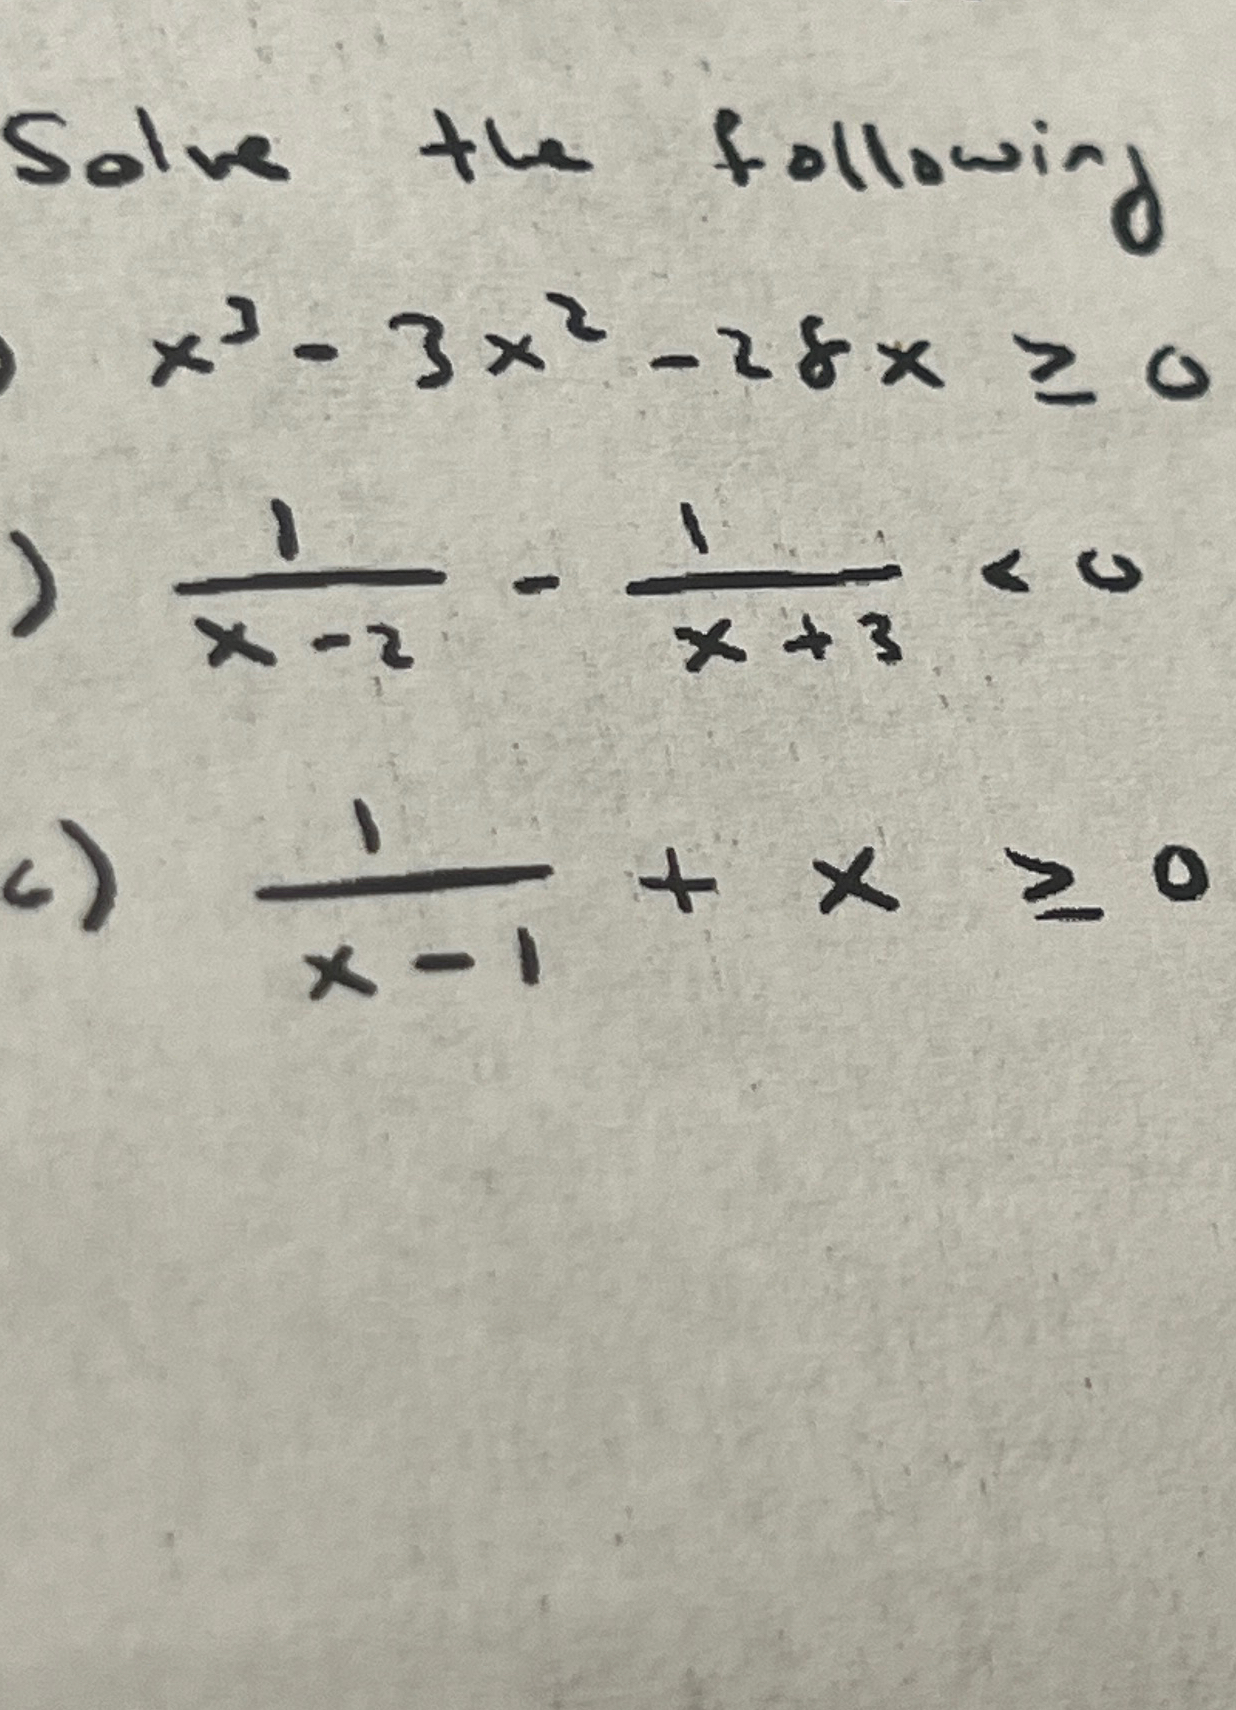 Solve the following
) x³ - 3x² - 28x ≥ 0
) 1/(x - 2) - 1/(x + 3) < 0
c) 1/(x - 1) + x ≥ 0